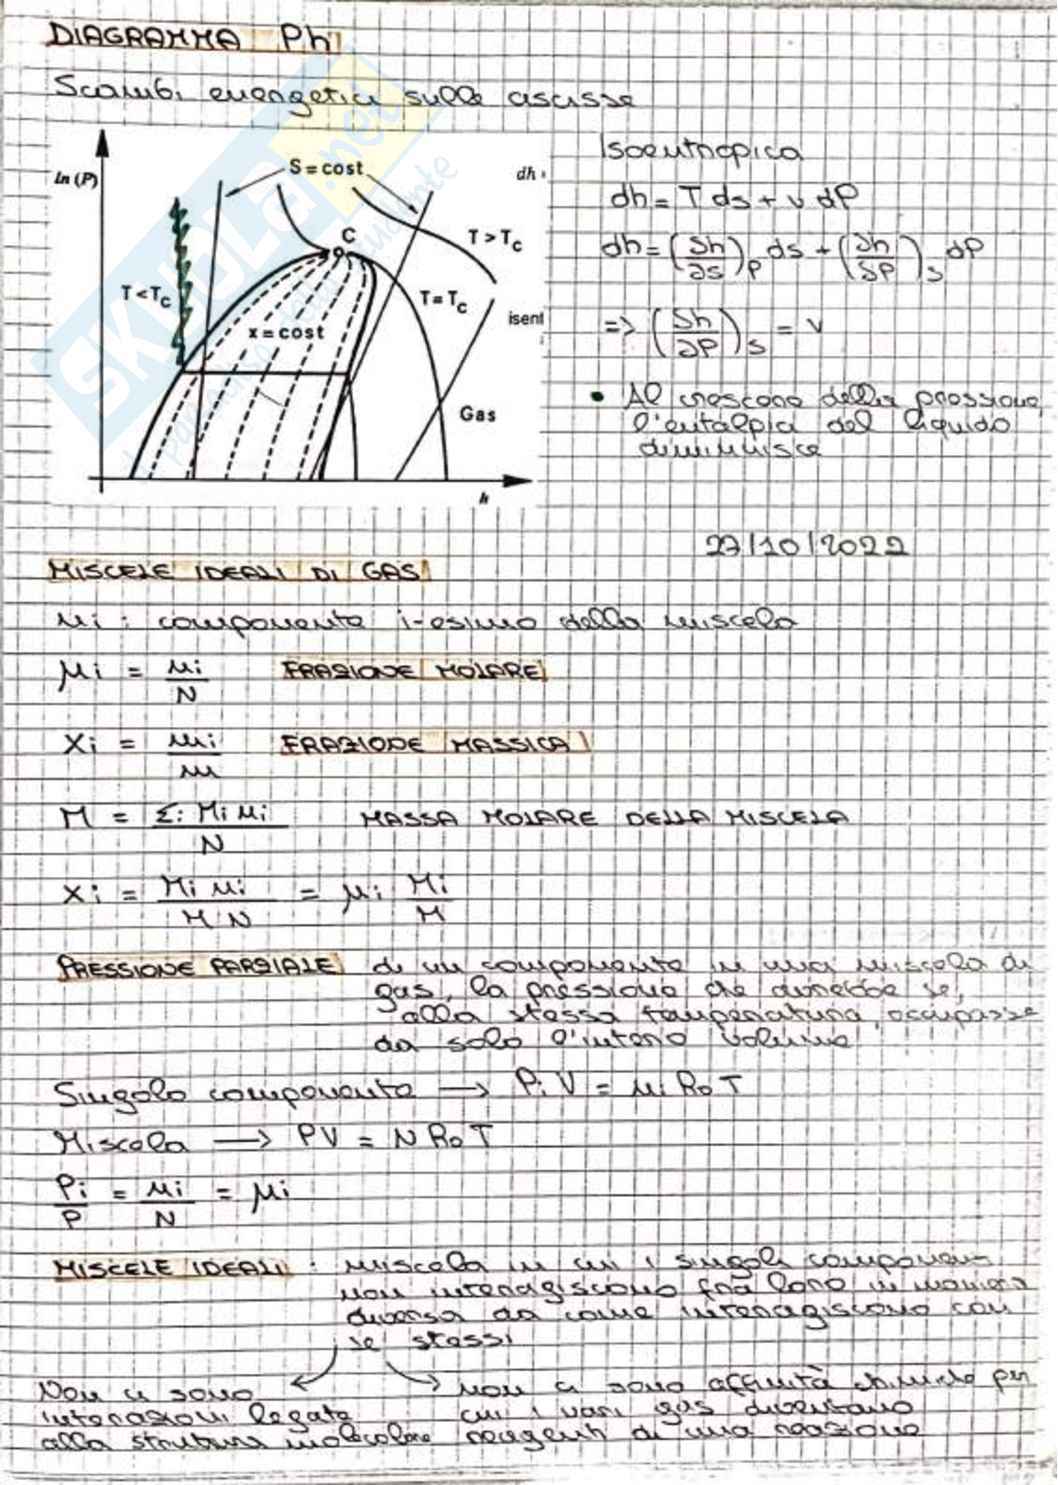 DIAGRAMMA Ph
Scambi energetici sulle ascisse
ln (P)
S = cost
dh
C
T > Tc
T < Tc
T = Tc
x = cost
isent
Gas
h
Isoentropica
dh = T ds + v dP
dh = (∂h/∂s)P ds + (∂h/∂P)S dP
=> (∂h/∂P)S = v
• Al crescere della pressione
l'entalpia del liquido
diminuisce
27/10/2022
MISCELE IDEALI DI GAS
ni : componente i-esimo della miscela
μi = ni/N FRAZIONE MOLARE
xi = mi/m FRAZIONE MASSICA
M = Σi Mi ni / N MASSA MOLARE DELLA MISCELA
xi = Mi ni / M N = μi Mi/M
PRESSIONE PARZIALE di un componente in una miscela di
gas, la pressione che avrebbe se,
alla stessa temperatura, occupasse
da solo l'intero volume
Singolo componente → Pi V = ni R0 T
Miscela → PV = N R0 T
Pi/P = ni/N = μi
MISCELE IDEALI : miscela in cui i singoli componenti
non interagiscono fra loro in maniera
diversa da come interagiscono con
se stessi
Non ci sono
interazioni legate
alla struttura molecolare
non ci sono affinità chimiche per
cui i vari gas diventano
reagenti di una reazione
SKUOLA.net